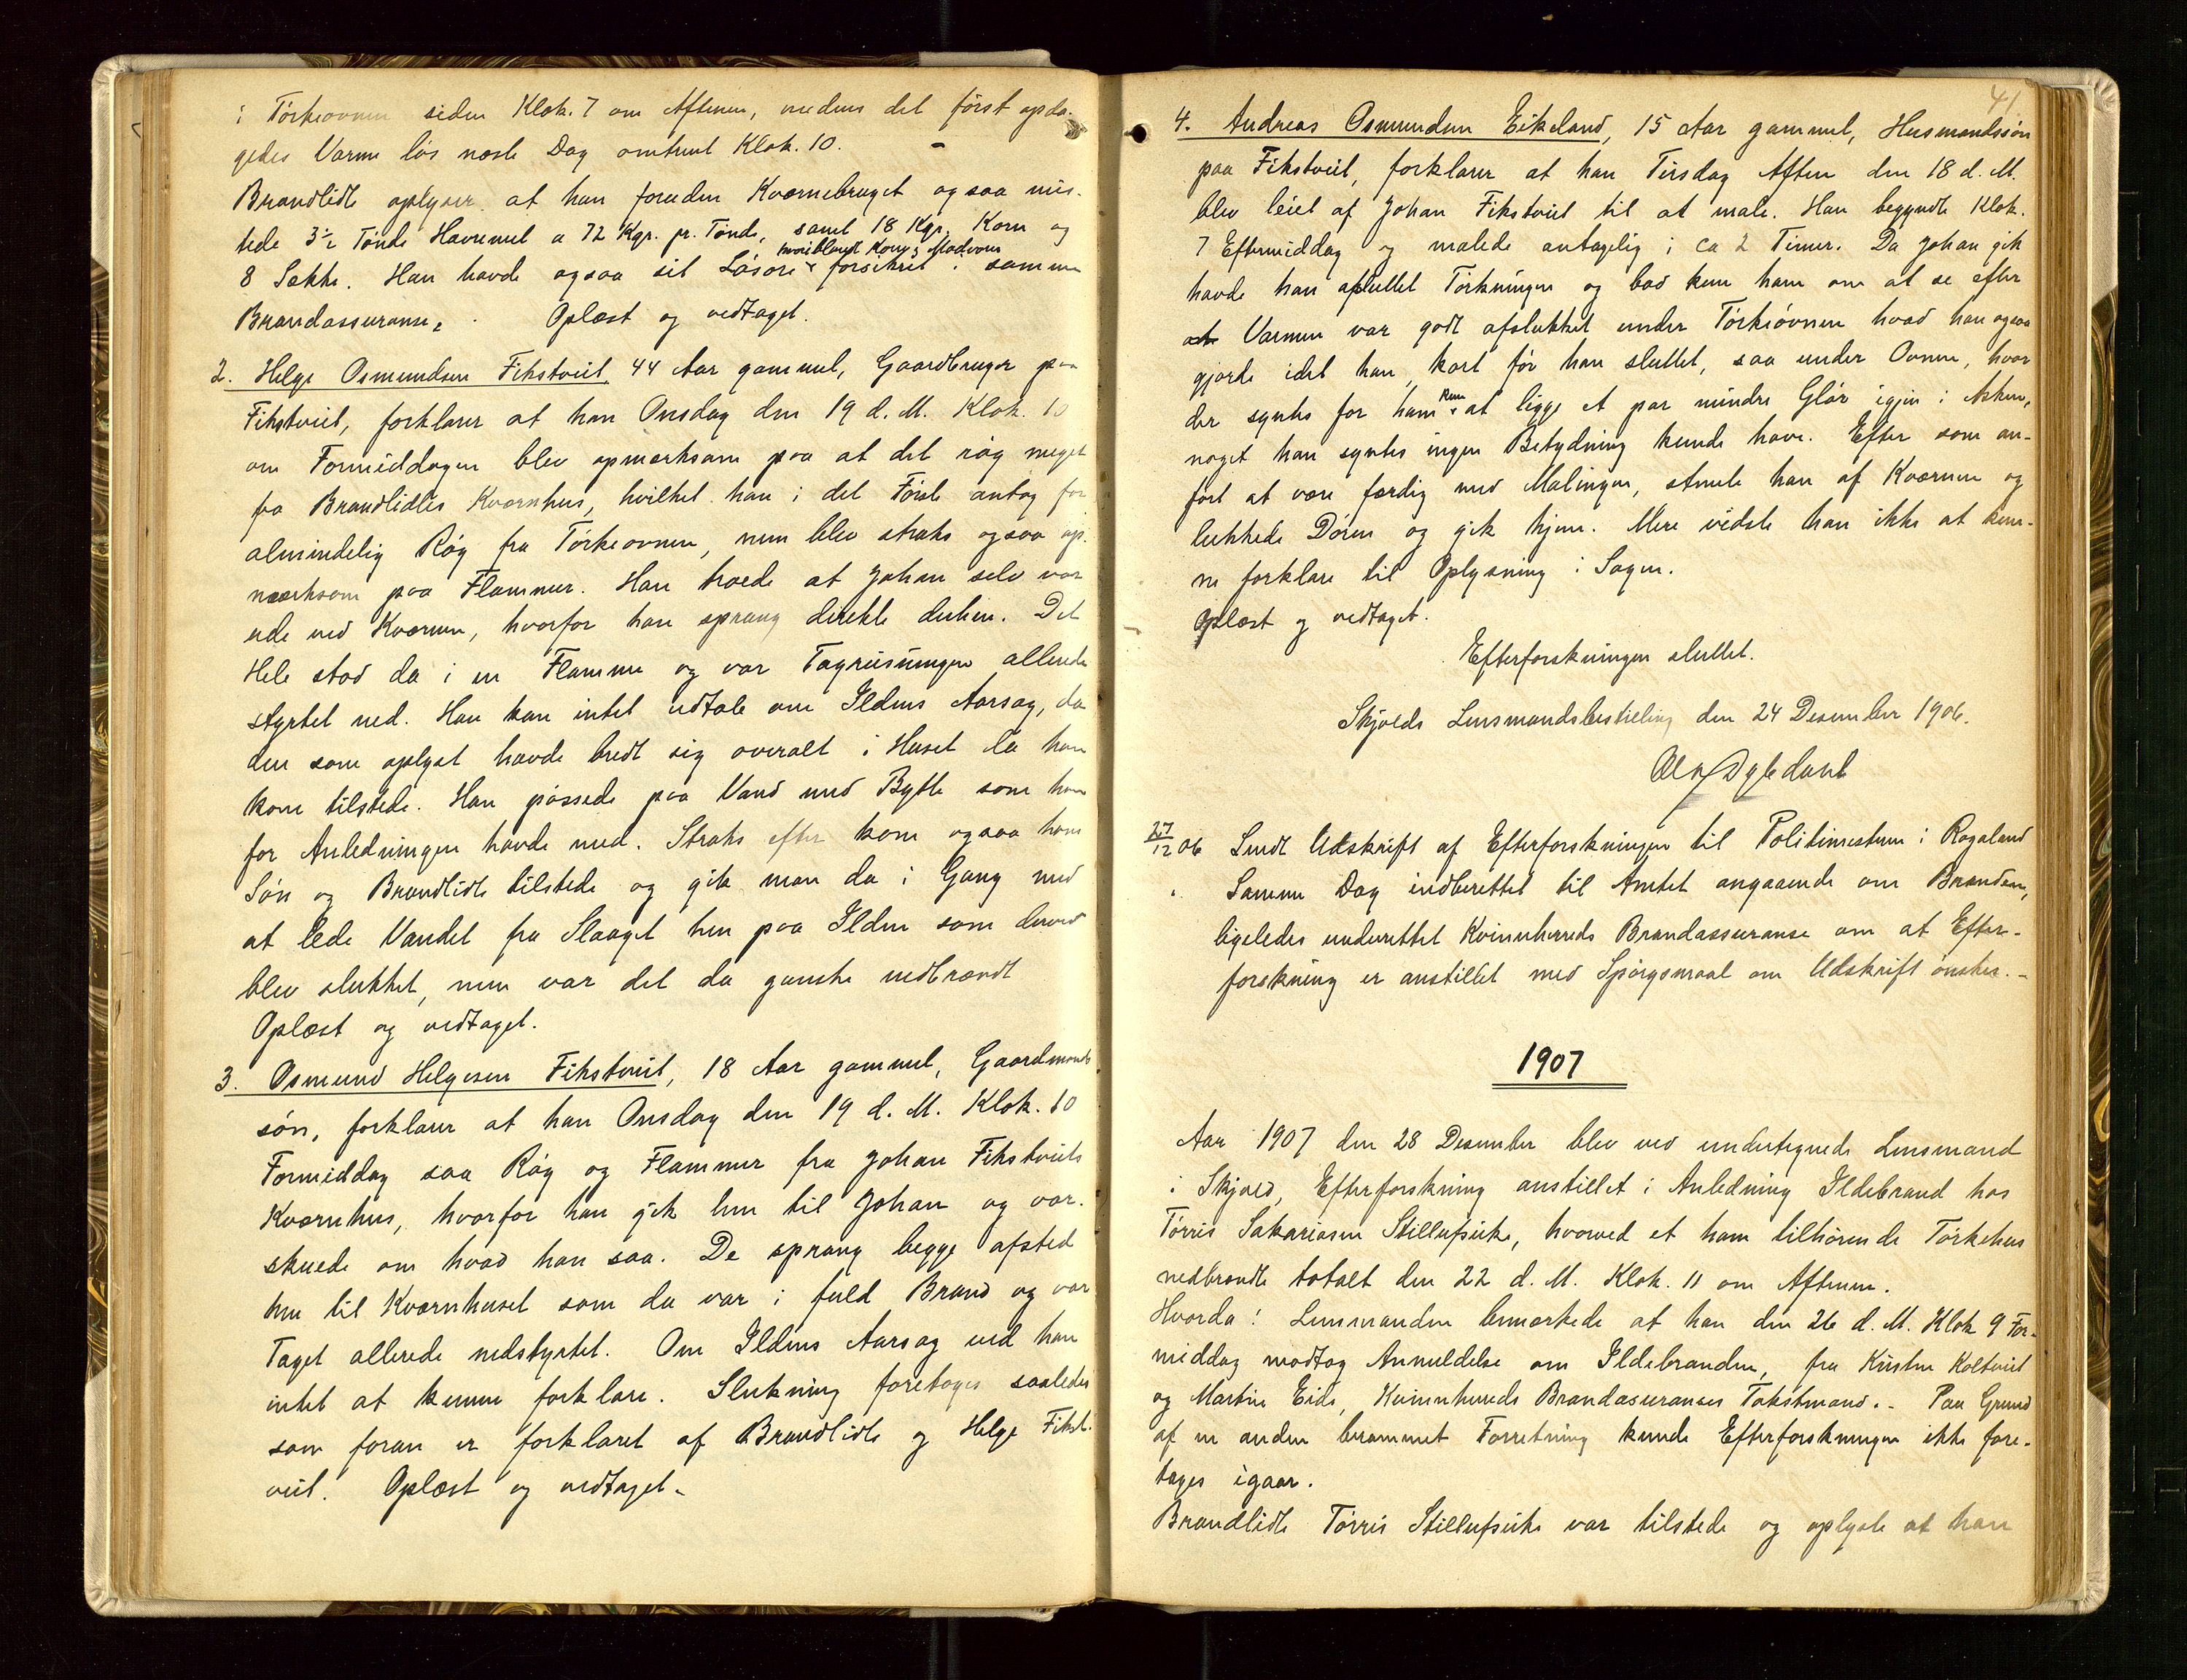 i Tørkeovnen siden Klok. 7 om Aftenen, medens det først opda-
gedes Varme løs næste Dag omtrent Klok. 10. –
Brandlidte oplyser at han foruden Kværnebruget ogsaa mis-
tede 3½ Tønde Havremel a 72 Kgr. pr. Tønde, samt 18 Kgr. Korn og
hvoriblandt Korn & Madvarer
8 Sække. Han havde ogsaa sit Løsøre × forsikret i samme
Brandassuranse. Oplæst og vedtaget.
2. Helge Osmundsen Fikstveit 44 Aar gammel, Gaardbruger paa
Fikstveit, forklarer at han Onsdag den 19 d. M. Klok. 10
om Formiddagen blev opmærksom paa at det røg meget
fra Brandlidtes Kværnhus, hvilket han i det Første antog for
almindelig Røg fra Tørkeovnen, men blev straks ogsaa op-
mærksom paa Flammer. Han troede at Johan selv var
ude ved Kværnen, hvorfor han sprang direkte derhen. Det
Hele stod da i en Flamme og var Tagreisningen allerede
styrtet ned. Han kan intet udtale om Ildens Aarsag, da
den som oplyst havde bredt sig overalt i Huset da han
kom tilstede. Han pøssede paa Vand med Bytte som han
for Anledningen havde med. Straks efter kom ogsaa hans
Søn og Brandlidte tilstede og gik man da i Gang med
at lede Vandet fra Slaaget hen paa Ilden som derved
blev slukket, men var det da ganske nedbrændt
Oplæst og vedtaget.
3. Osmund Helgesen Fikstveit, 18 Aar gammel, Gaardmands-
søn, forklarer at han Onsdag den 19 d. M. Klok. 10
Formiddag saa Røg og Flammer fra Johan Fikstveits
Kværnhus, hvorfor han gik hen til Johan og var-
skuede om hvad han saa. De sprang begge afsted
hen til Kværnhuset som da var i fuld Brand og var
Taget allerede nedstyrtet. Om Ildens Aarsag ved han
intet at kunne forklare. Slukning foretoges saaledes
som foran er forklaret af Brandlidte og Helge Fikst-
veit. Oplæst og vedtaget.
41.
4. Andreas Osmundsen Eikeland, 15 Aar gammel, Husmandssøn
paa Fikstveit, forklarer at han Tirsdag Aften den 18 d. M.
blev leiet af Johan Fikstveit til at male. Han begyndte Klok.
7 Eftermiddag og malede antagelig i ca 2 Timer. Da Johan gik
havde han afsluttet Tørkningen og bad kun ham om at se efter
at Varmen var godt afslukket under Tørkeovnen hvad han ogsaa
gjorde idet han, kort før han sluttet, saa under Ovnen, hvor
der syntes for ham × kun at ligge et par mindre Glør igjen i Asken,
noget han syntes ingen Betydning kunde have. Efter som an-
ført at være færdig med Malingen, stemte han af Kværnen og
lukkede Døren og gik hjem. Mere vidste han ikke at kun-
ne forklare til Oplysning i Sagen.
Oplæst og vedtaget.
Efterforskningen sluttet.
Skjolds Lensmandsbestilling den 24 Desember 1906.
27/12 06 Sendt Udskrift af Efterforskningen til Politimesteren i Rogaland
" Samme Dag indberettet til Amtet angaaende om Branden,
ligeledes underrettet Kvinnherreds Brandassuranse om at Efter-
forskning er anstillet med Spørgsmaal om Udskrift ønskes. –
1907
Aar 1907 den 28 Desember blev ved undertegnede Lensmand
i Skjold, Efterforskning anstillet i Anledning Ildebrand hos
Tørris Sakariasen Stillufseike, hvorved et ham tilhørende Tørkehus
nedbrændte totalt den 22 d. M. Klok. 11 om Aftenen.
Hvorda: Lensmanden bemærkede at han den 26 d. M. Klok 9 For-
middag modtog Anmeldelse om Ildebranden, fra Kristen Koltveit
og Martin Eide, Kvinnherreds Brandassuranses Takstmænd. – Paa Grund
af en anden berammet Forretning kunde Efterforskningen ikke fore-
tages igaar.
Brandlidte Tørris Stillufseike var tilstede og oplyste at han